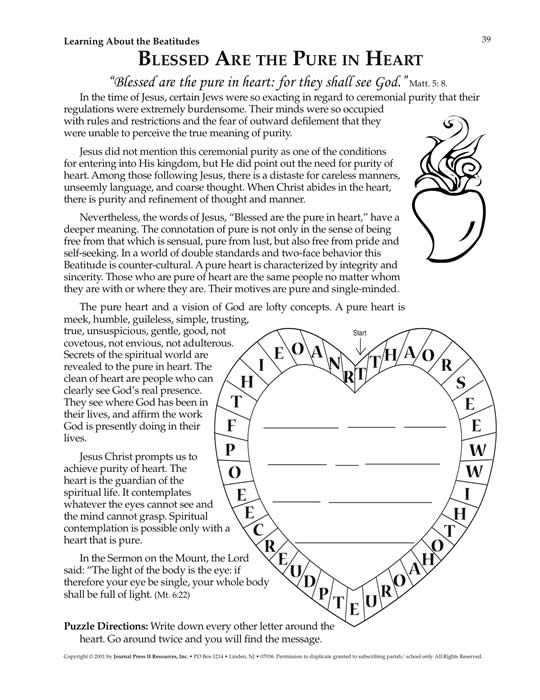 39
Learning About the Beatitudes
BLESSED ARE THE PURE IN HEART
"Blessed are the pure in heart: for they shall see God." Matt. 5: 8.
In the time of Jesus, certain Jews were so exacting in regard to ceremonial purity that their
regulations were extremely burdensome. Their minds were so occupied
with rules and restrictions and the fear of outward defilement that they
were unable to perceive the true meaning of purity.
Jesus did not mention this ceremonial purity as one of the conditions
for entering into His kingdom, but He did point out the need for purity of
heart. Among those following Jesus, there is a distaste for careless manners,
unseemly language, and coarse thought. When Christ abides in the heart,
there is purity and refinement of thought and manner.
Nevertheless, the words of Jesus, "Blessed are the pure in heart," have a
deeper meaning. The connotation of pure is not only in the sense of being
free from that which is sensual, pure from lust, but also free from pride and
self-seeking. In a world of double standards and two-face behavior this
Beatitude is counter-cultural. A pure heart is characterized by integrity and
sincerity. Those who are pure of heart are the same people no matter whom
they are with or where they are. Their motives are pure and single-minded.
The pure heart and a vision of God are lofty concepts. A pure heart is
meek, humble, guileless, simple, trusting,
true, unsuspicious, gentle, good, not
covetous, not envious, not adulterous.
Secrets of the spiritual world are
revealed to the pure in heart. The
clean of heart are people who can
clearly see God's real presence.
They see where God has been in
their lives, and affirm the work
God is presently doing in their
lives.
Jesus Christ prompts us to
achieve purity of heart. The
heart is the guardian of the
spiritual life. It contemplates
whatever the eyes cannot see and
the mind cannot grasp. Spiritual
contemplation is possible only with a
heart that is pure.
In the Sermon on the Mount, the Lord
said: "The light of the body is the eye: if
therefore your eye be single, your whole body
shall be full of light. (Mt. 6:22)
Start
T T H A O R S E E W W I H T O H A O R U E T P D U E R C E E O P F T H I E O A N R
Puzzle Directions: Write down every other letter around the
heart. Go around twice and you will find the message.
Copyright © 2001 by Journal Press II Resources, Inc. • PO Box 1214 • Linden, NJ • 07036. Permission to duplicate granted to subscribing parish/ school only. All Rights Reserved.